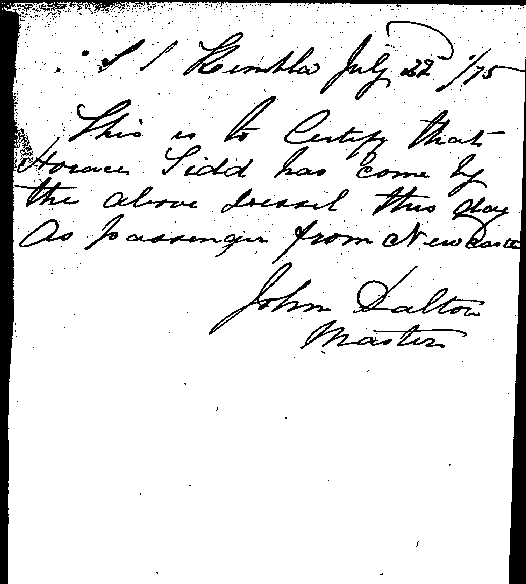 S S Kembla July 22 /75
This is to Certify that
Horace Tidd has come by
the above vessel this day
As passenger from Newcastle
John Dalton
Master